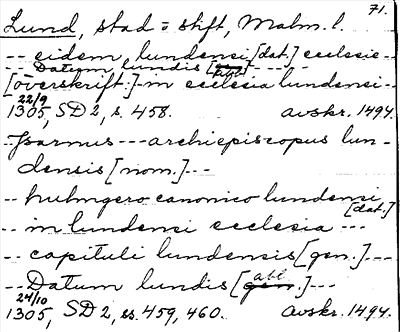 71.
Lund, stad o stift, Malm. l.
-- eidem lundensi [dat.] ecclesie--
Datum lundis [abl.] -----
[överskrift:] -- in ecclesia lundensi--
22/9
1305, SD 2, s. 458. avskr. 1494.
-- Isarnus --- archiepiscopus lun-
densis [nom.] ---
-- hulmgero canonico lundensi
[dat.]
-- in lundensi ecclesia ---
-- capituli lundensis [gen.] ---
-- Datum lundis [abl.] ---
24/10
1305, SD 2, ss. 459, 460. avskr. 1494.